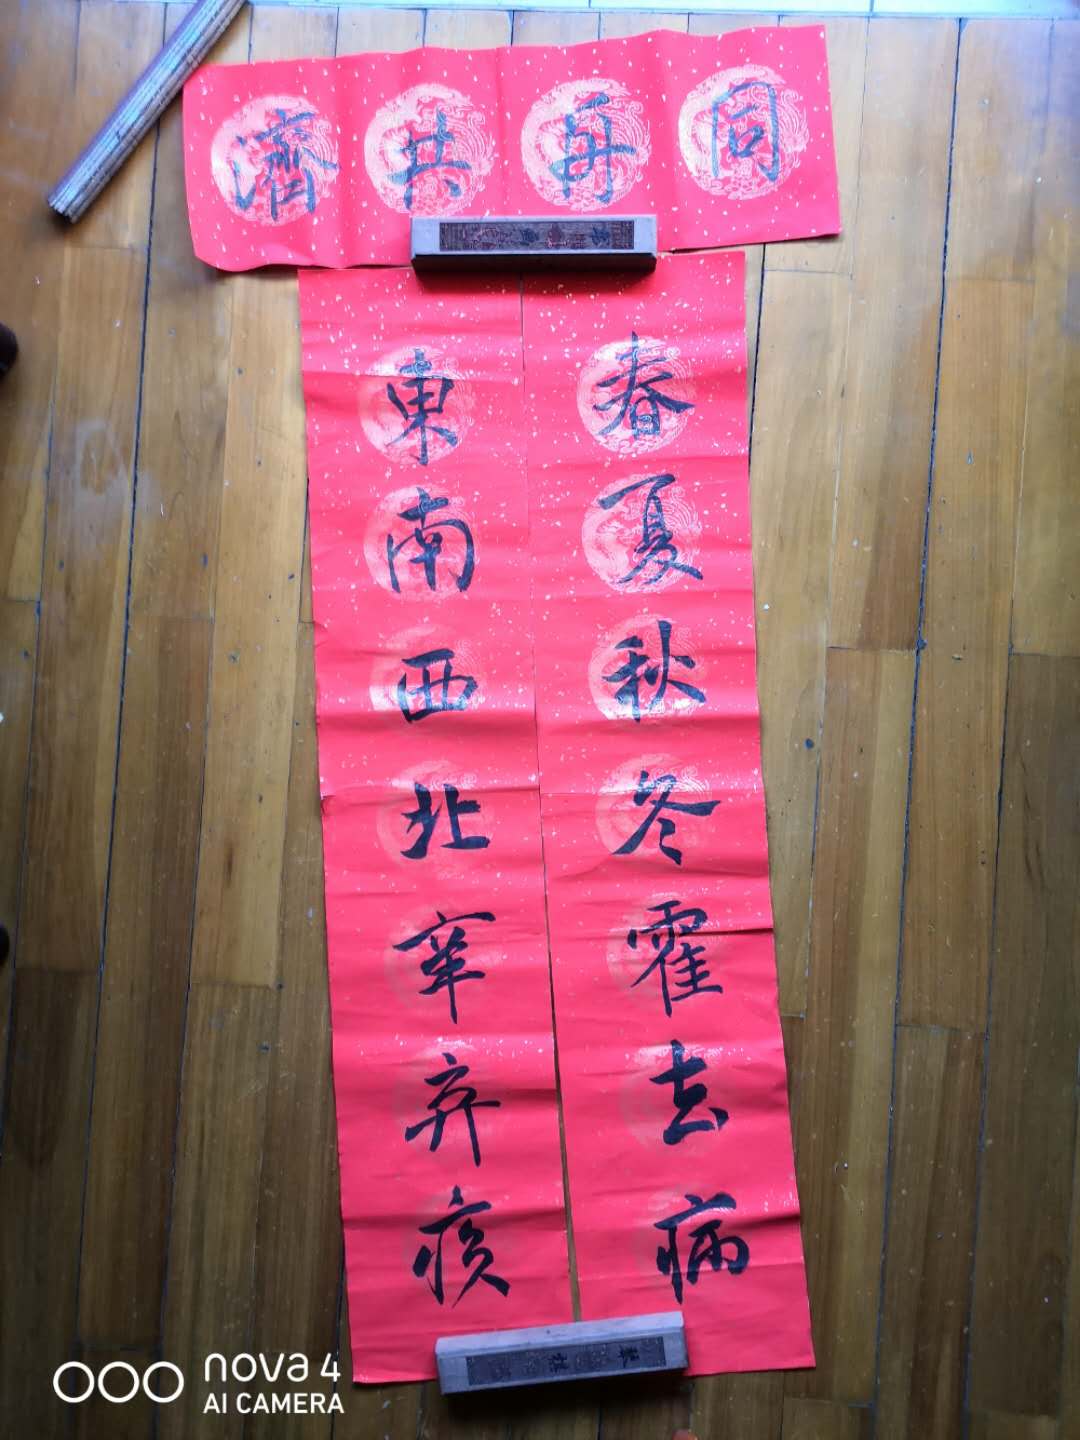 同舟共濟
春夏秋冬霍去病
東南西北辛弃疾
nova 4
AI CAMERA